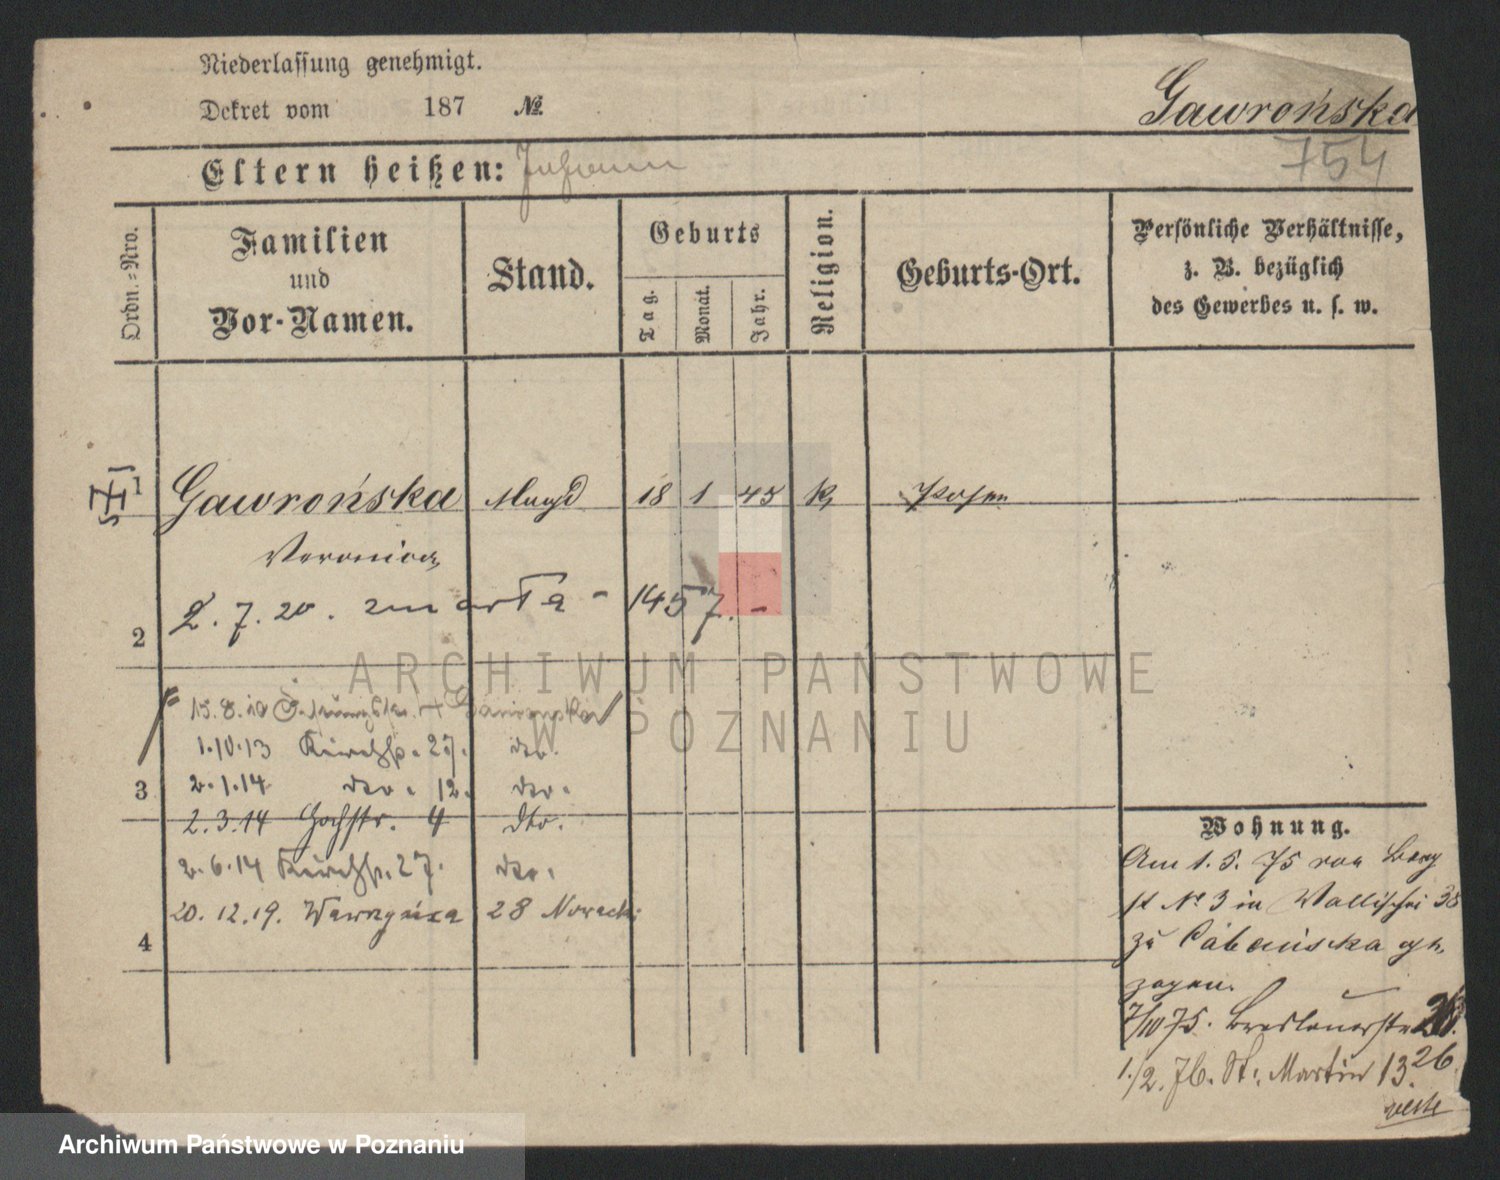 Niederlassung genehmigt.
Dekret vom 187 №
Gawrońska
754
Eltern heißen: Johann
Ordn.-Nro.
Familien
und
Vor-Namen.
Stand.
Geburts
Tag.
Monat.
Jahr.
Religion.
Geburts-Ort.
Persönliche Verhältnisse,
z. B. bezüglich
des Gewerbes u. s. w.
1 Gawrońska Magd 18 1 45 k Posen
Veronica
2. 7. 20. zmarła - 1457. -
2
15.8.10
1.10.13 Kirchstr. 27. dto.
3 2.1.14 dto. 12. dto.
2.3.14 Hochstr. 4 dto.
2.6.14 Kirchstr. 27. dto.
20. 12. 19. Wawrzyńca 28 Nowacki
4
Wohnung.
Am 1. 5. 75 von Berg
st № 3 in Wallischei 38
zu ge
zogen.
7/10 75. Breslauerstr
1./2. 76. St. Martin 13. 26
ARCHIWUM PAŃSTWOWE
W POZNANIU
Archiwum Państwowe w Poznaniu